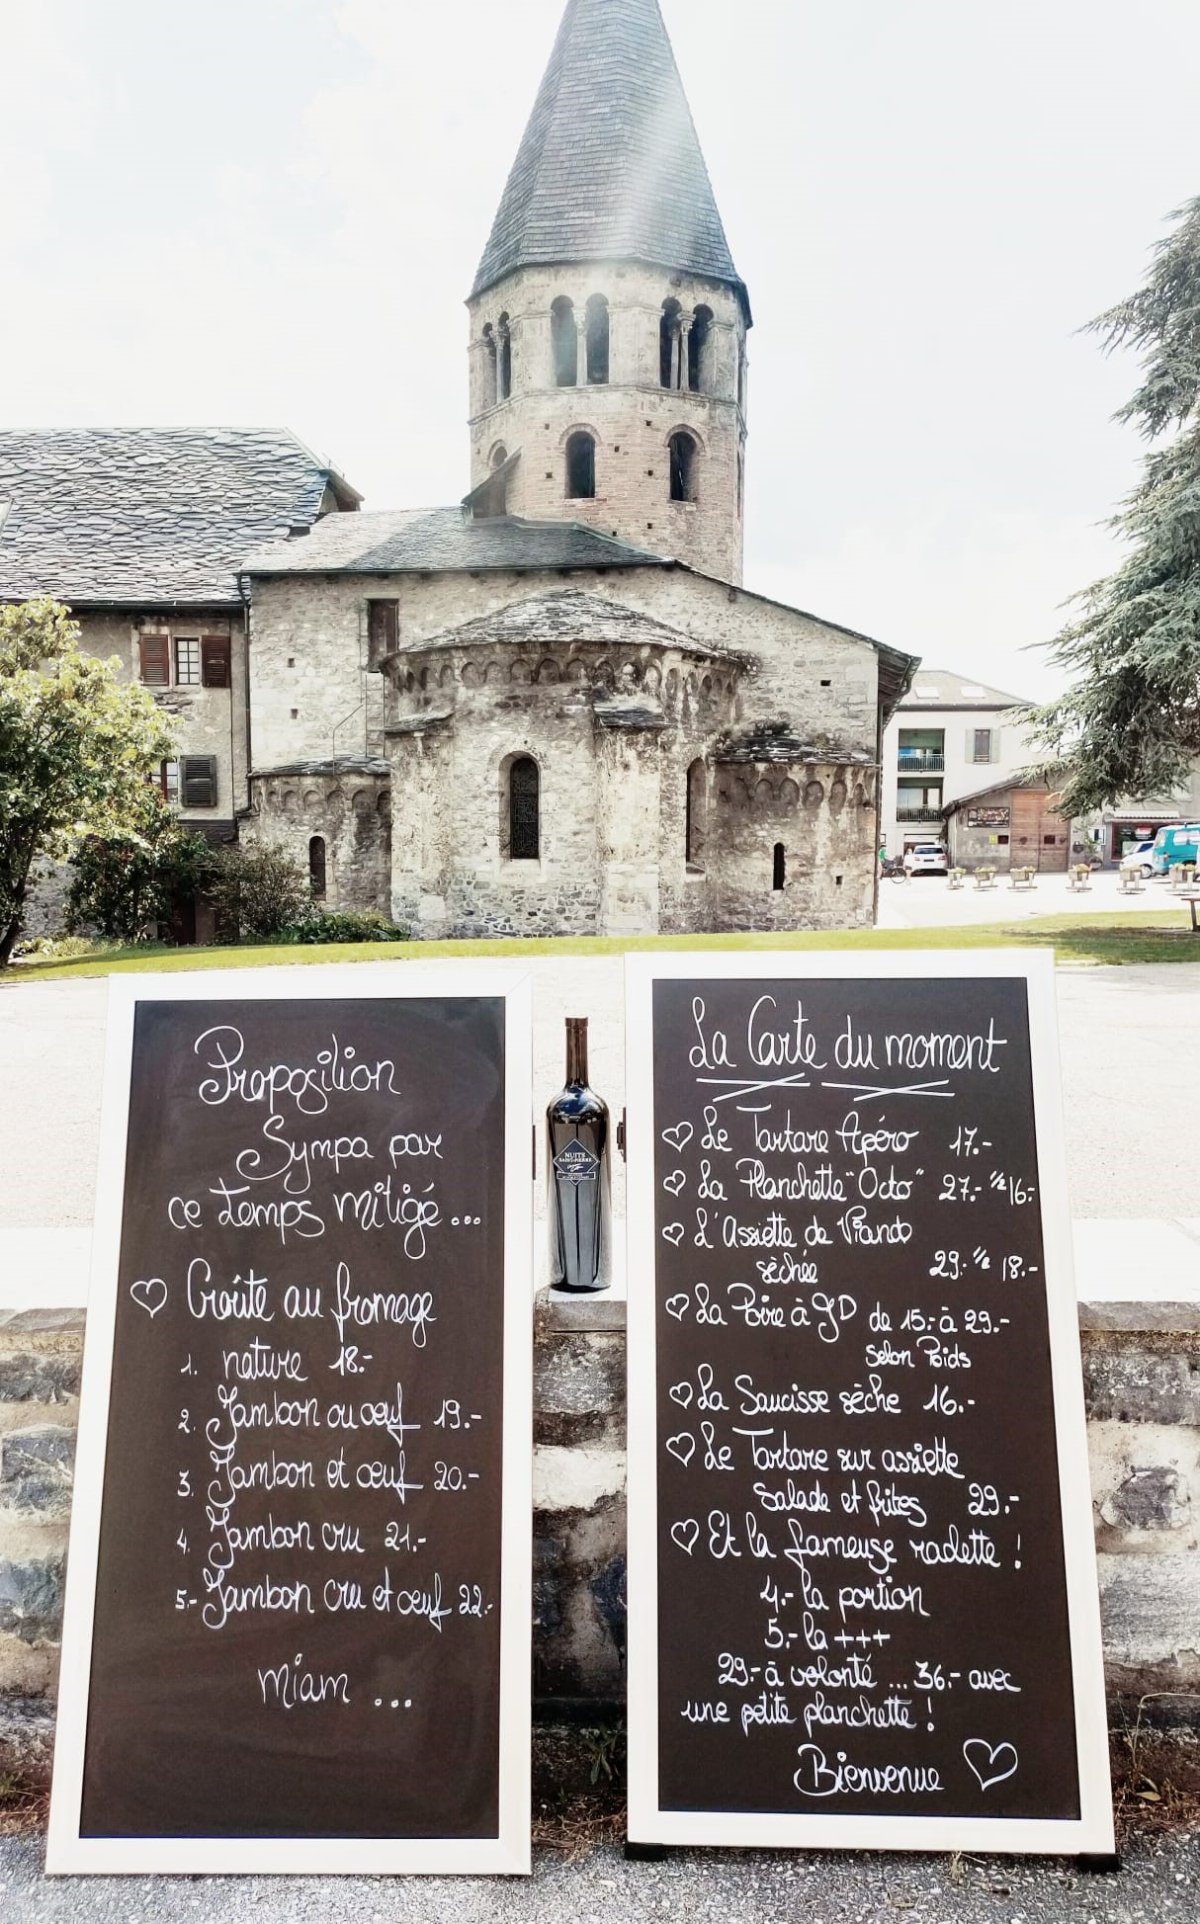 Proposition
Sympa par
ce temps mitigé...
Croûte au fromage
1. nature 18.-
2. Jambon ou oeuf 19.-
3. Jambon et oeuf 20.-
4. Jambon cru 21.-
5.- Jambon cru et oeuf 22.-
miam ...
NUITS
SAINT-PIERRE
La Carte du moment
Le Tartare Apéro 17.-
La Planchette "Octo" 27.- 1/2 16.-
L'Assiette de Viande
sèchée 29.- 1/2 18.-
La Poire à GD de 15.- à 29.-
selon Poids
La Saucisse sèche 16.-
Le Tartare sur assiette
Salade et frites 29.-
Et la fameuse raclette !
4.- la portion
5.- la +++
29.- à volonté ... 36.- avec
une petite planchette !
Bienvenue